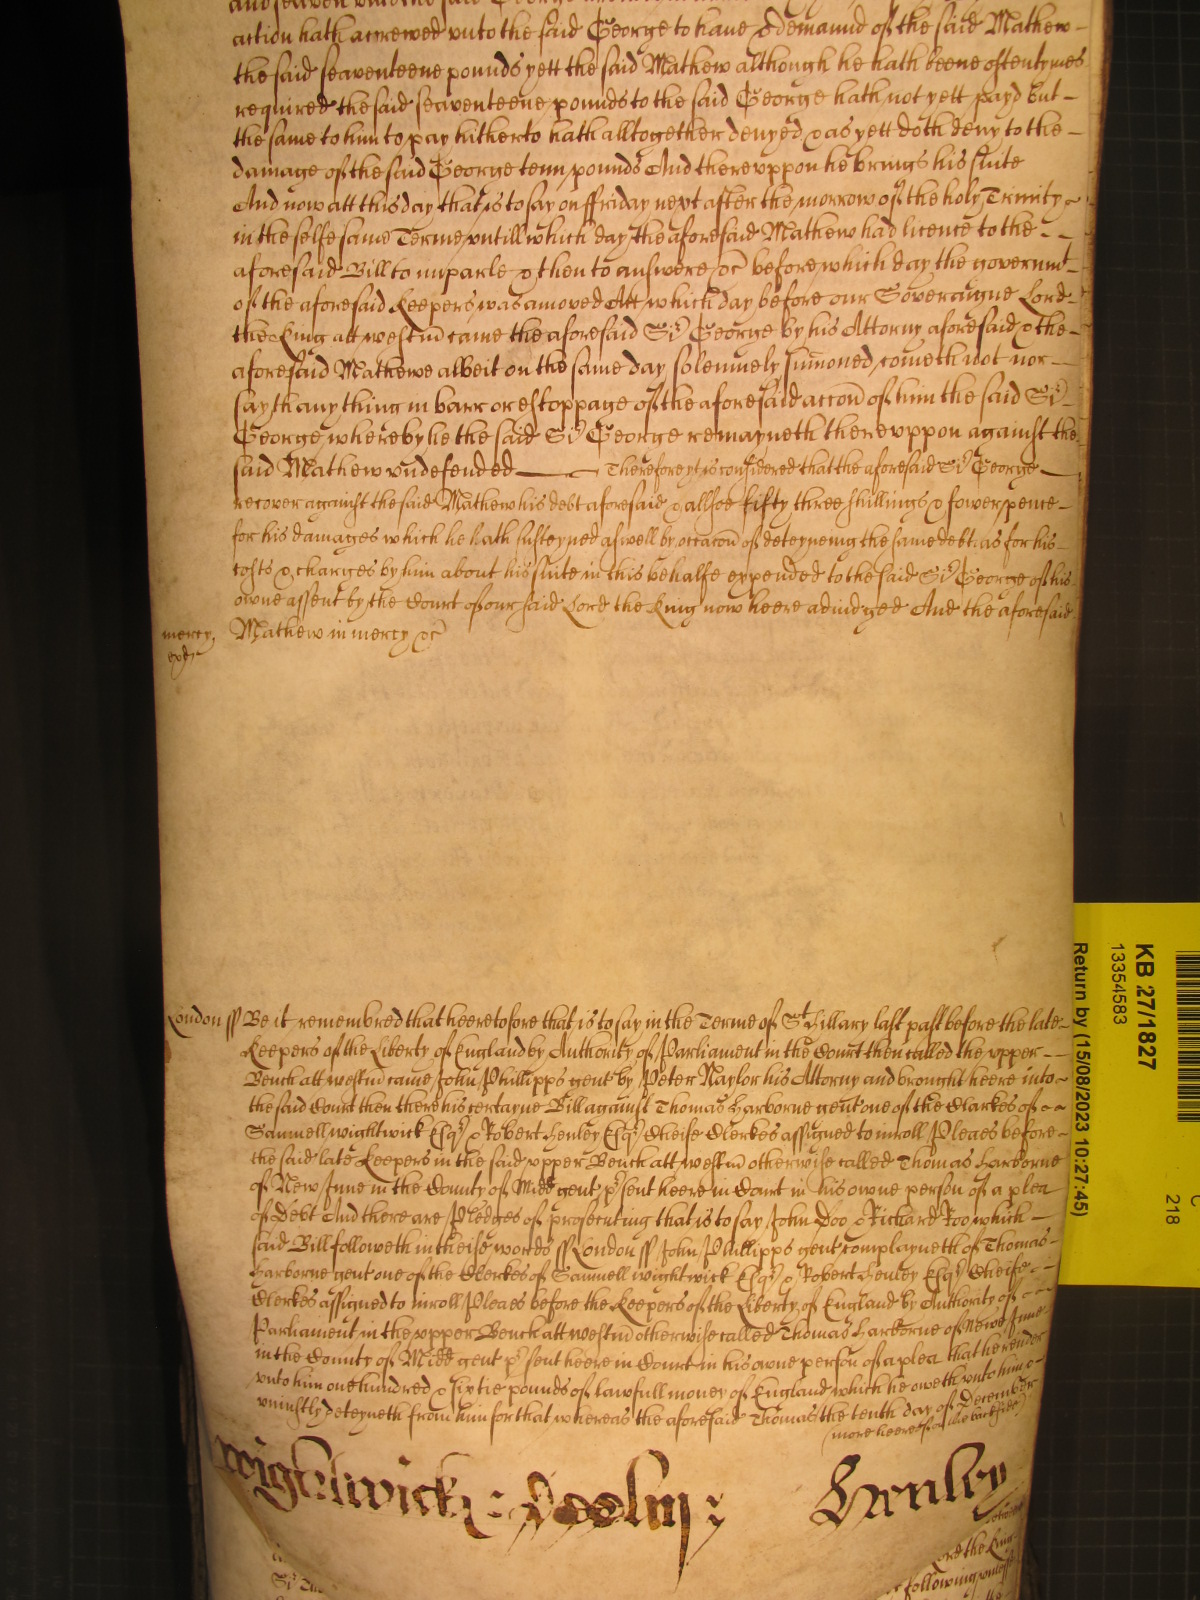 and seaven
action hath accrewed unto the said George to have & demaund of the said Mathew
the said seaventeene pounds yett the said Mathew although he hath beene oftentymes
required the said seaventeene pounds to the said George hath not yett payd but
the same to him to pay hitherto hath alltogether denyed & as yett doth deny to the
damage of the said George tenn pounds And thereuppon he brings his suite
And now att this day that is to say on ffriday next after the morrow of the holy Trinity
in the selfe same Terme untill which day the aforesaid Mathew had licence to the
aforesaid Bill to imparle & then to answere &c before which day the governmt
of the aforesaid Keepers was amoved Att which day before our Soveraigne Lord
the King att westm came the aforesaid Sr George by his Attorny aforesaid & the
aforesaid Mathewe albeit on the same day solemnely sumoned cometh not nor
sayth any thing in barr or estoppage of the aforesaid accon of him the said Sr
George whereby he the said Sr George remayneth thereuppon against the
said Mathew undefended Therefore yt is considered that the aforesaid Sr George
recover against the said Mathew his debt aforesaid & allsoe fifty three shillings & fower pence
for his damages which he hath susteyned aswell by occacon of deteyneing the same debt as for his
costs & charges by him about his suite in this behalfe expended to the said Sr George of his
owne assent by the Court of our said Lord the King now heere adiudged And the aforesaid
mercy Mathew in mercy &c
London ss Be it remembred that heeretofore that is to say in the Terme of St Hillary last past before the late
Keepers of the Liberty of England by Authority of Parliament in the Court then called the upper
Bench att westm came John Phillipps gent by Peter Naylor his Attorny and brought heere into
the said Court then there his certayne Bill against Thomas Harborne gent one of the Clarkes of
Samuell wightwick Esqr & Robert Henley Esqr Cheife Clerkes assigned to inroll Pleaes before
the said late Keepers in the said upper Bench att westm otherwise called Thomas Harborne
of New Inne in the County of Midd gent psent heere in Court in his owne person of a plea
of Debt And there are Pledges of prosecuting that is to say John Doo & Richard Roo which
said Bill followeth in theise words ss London ss John Phillipps gent complayneth of Thomas
Harborne gent one of the Clerkes of Samuell wightwick Esqr & Robert Henley Esqr Cheife
Clerkes assigned to inroll Pleaes before the Keepers of the Liberty of England by Authority of
Parliament in the upper Bench att westm otherwise called Thomas Harborne of New Inne
in the County of Midd gent psent heere in Court in his owne person of a plea that he render
unto him one hundred & sixtie pounds of lawfull money of England which he oweth unto him &
uniustly deteyneth from him for that whereas the aforesaid Thomas the tenth day of December
(more heereof on the backside)
Wightwick: Henley
ord the King
following
KB 27/1827
13354583
Return by (15/08/2023 10:27:45)
218